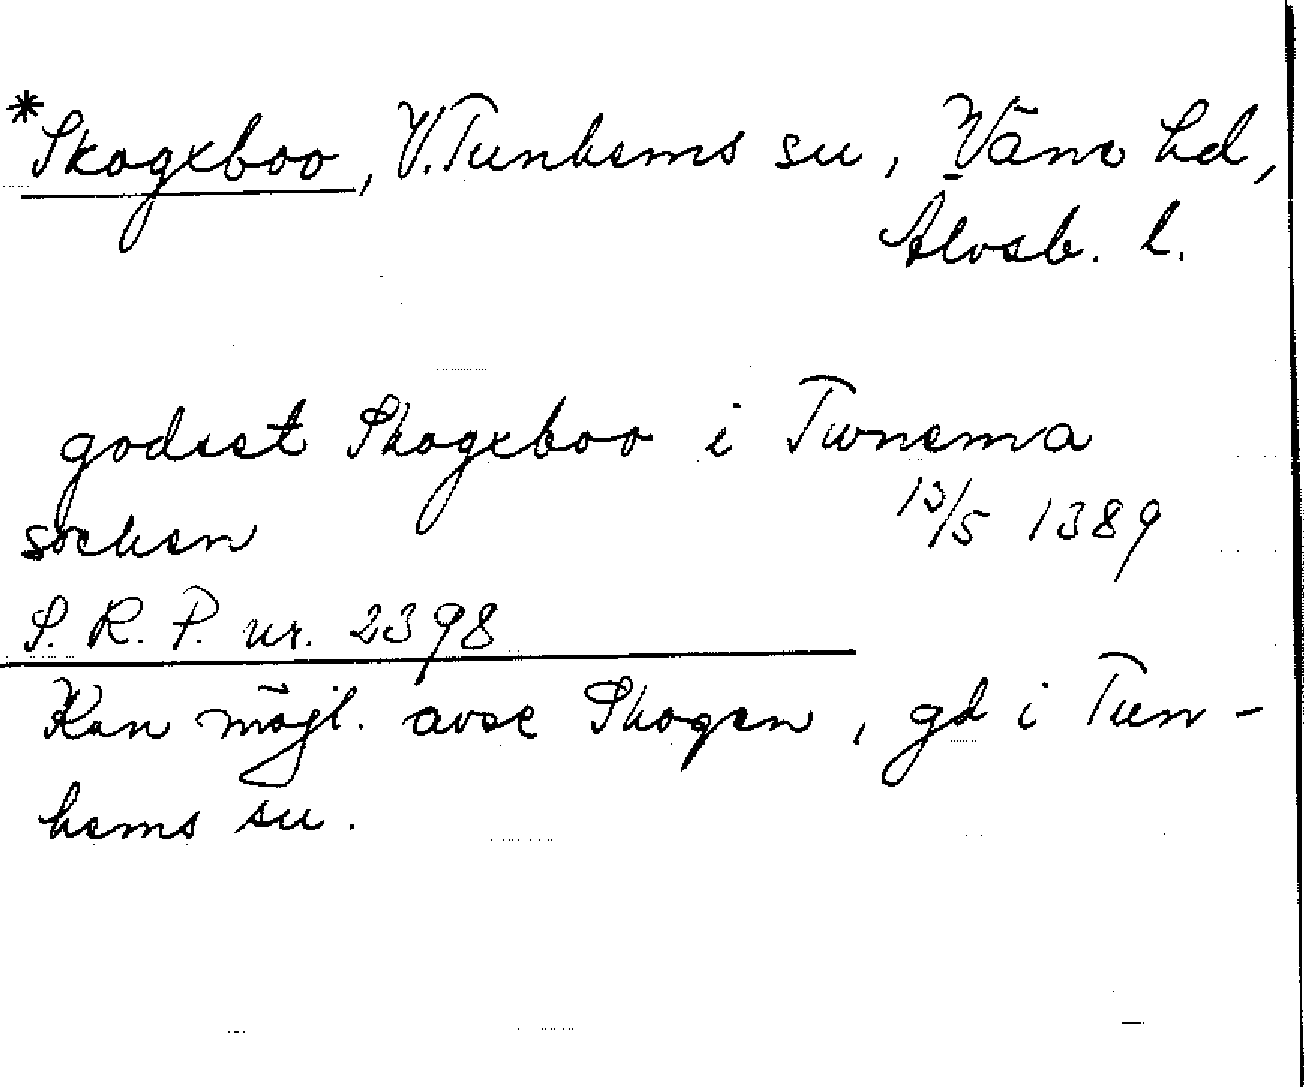 *Skogxboo, V. Tunhems sn, Väne hd,
Älvsb. l.
godset Skogxboo i Twnema
13/5 1389
socken
S. R. P. nr. 2398
Kan möjl. avse Skogen, gd i Tun-
hems sn.